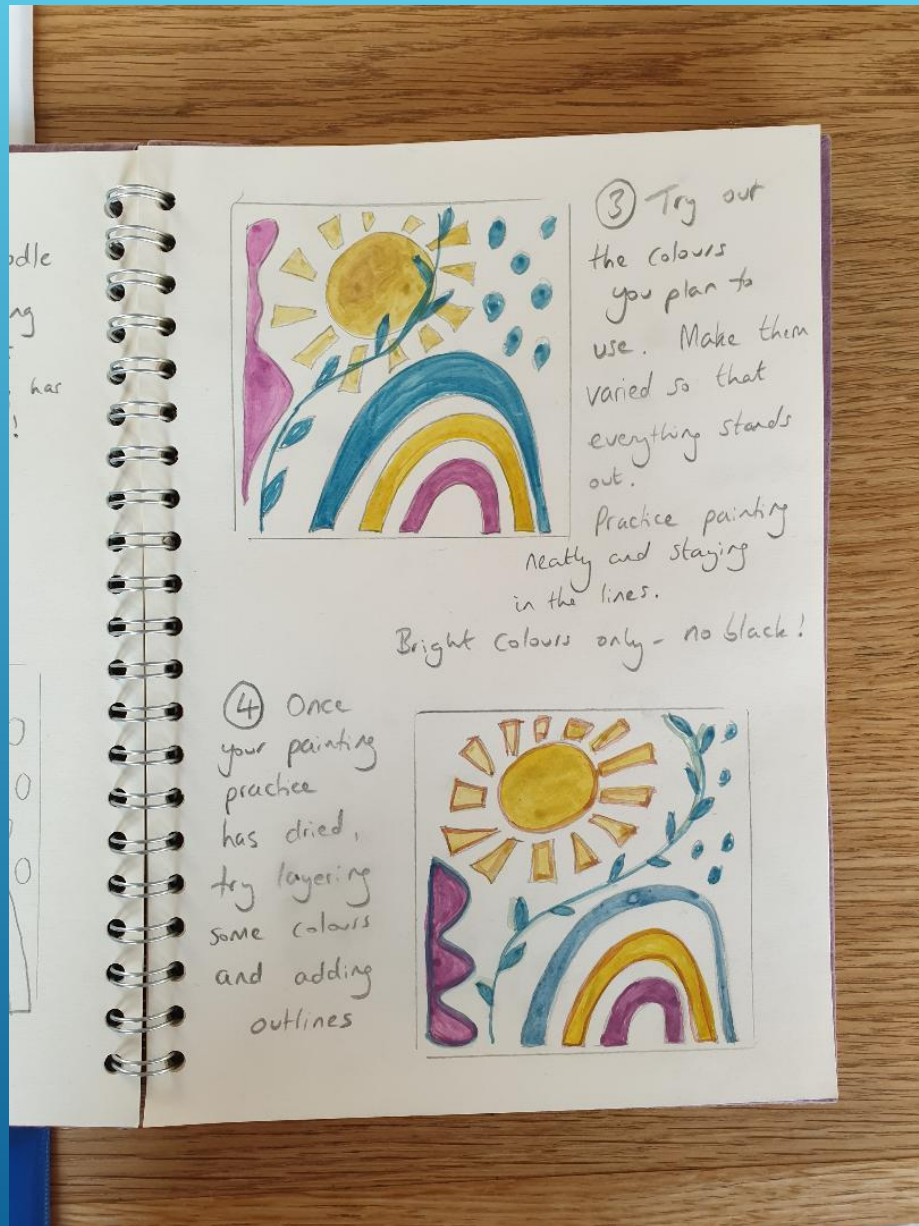 odle
ng
has
!
③ Try out
the colours
you plan to
use. Make them
varied so that
everything stands
out.
Practice painting
neatly and staying
in the lines.
Bright colours only - no black!
④ Once
your painting
practice
has dried,
try layering
some colours
and adding
outlines